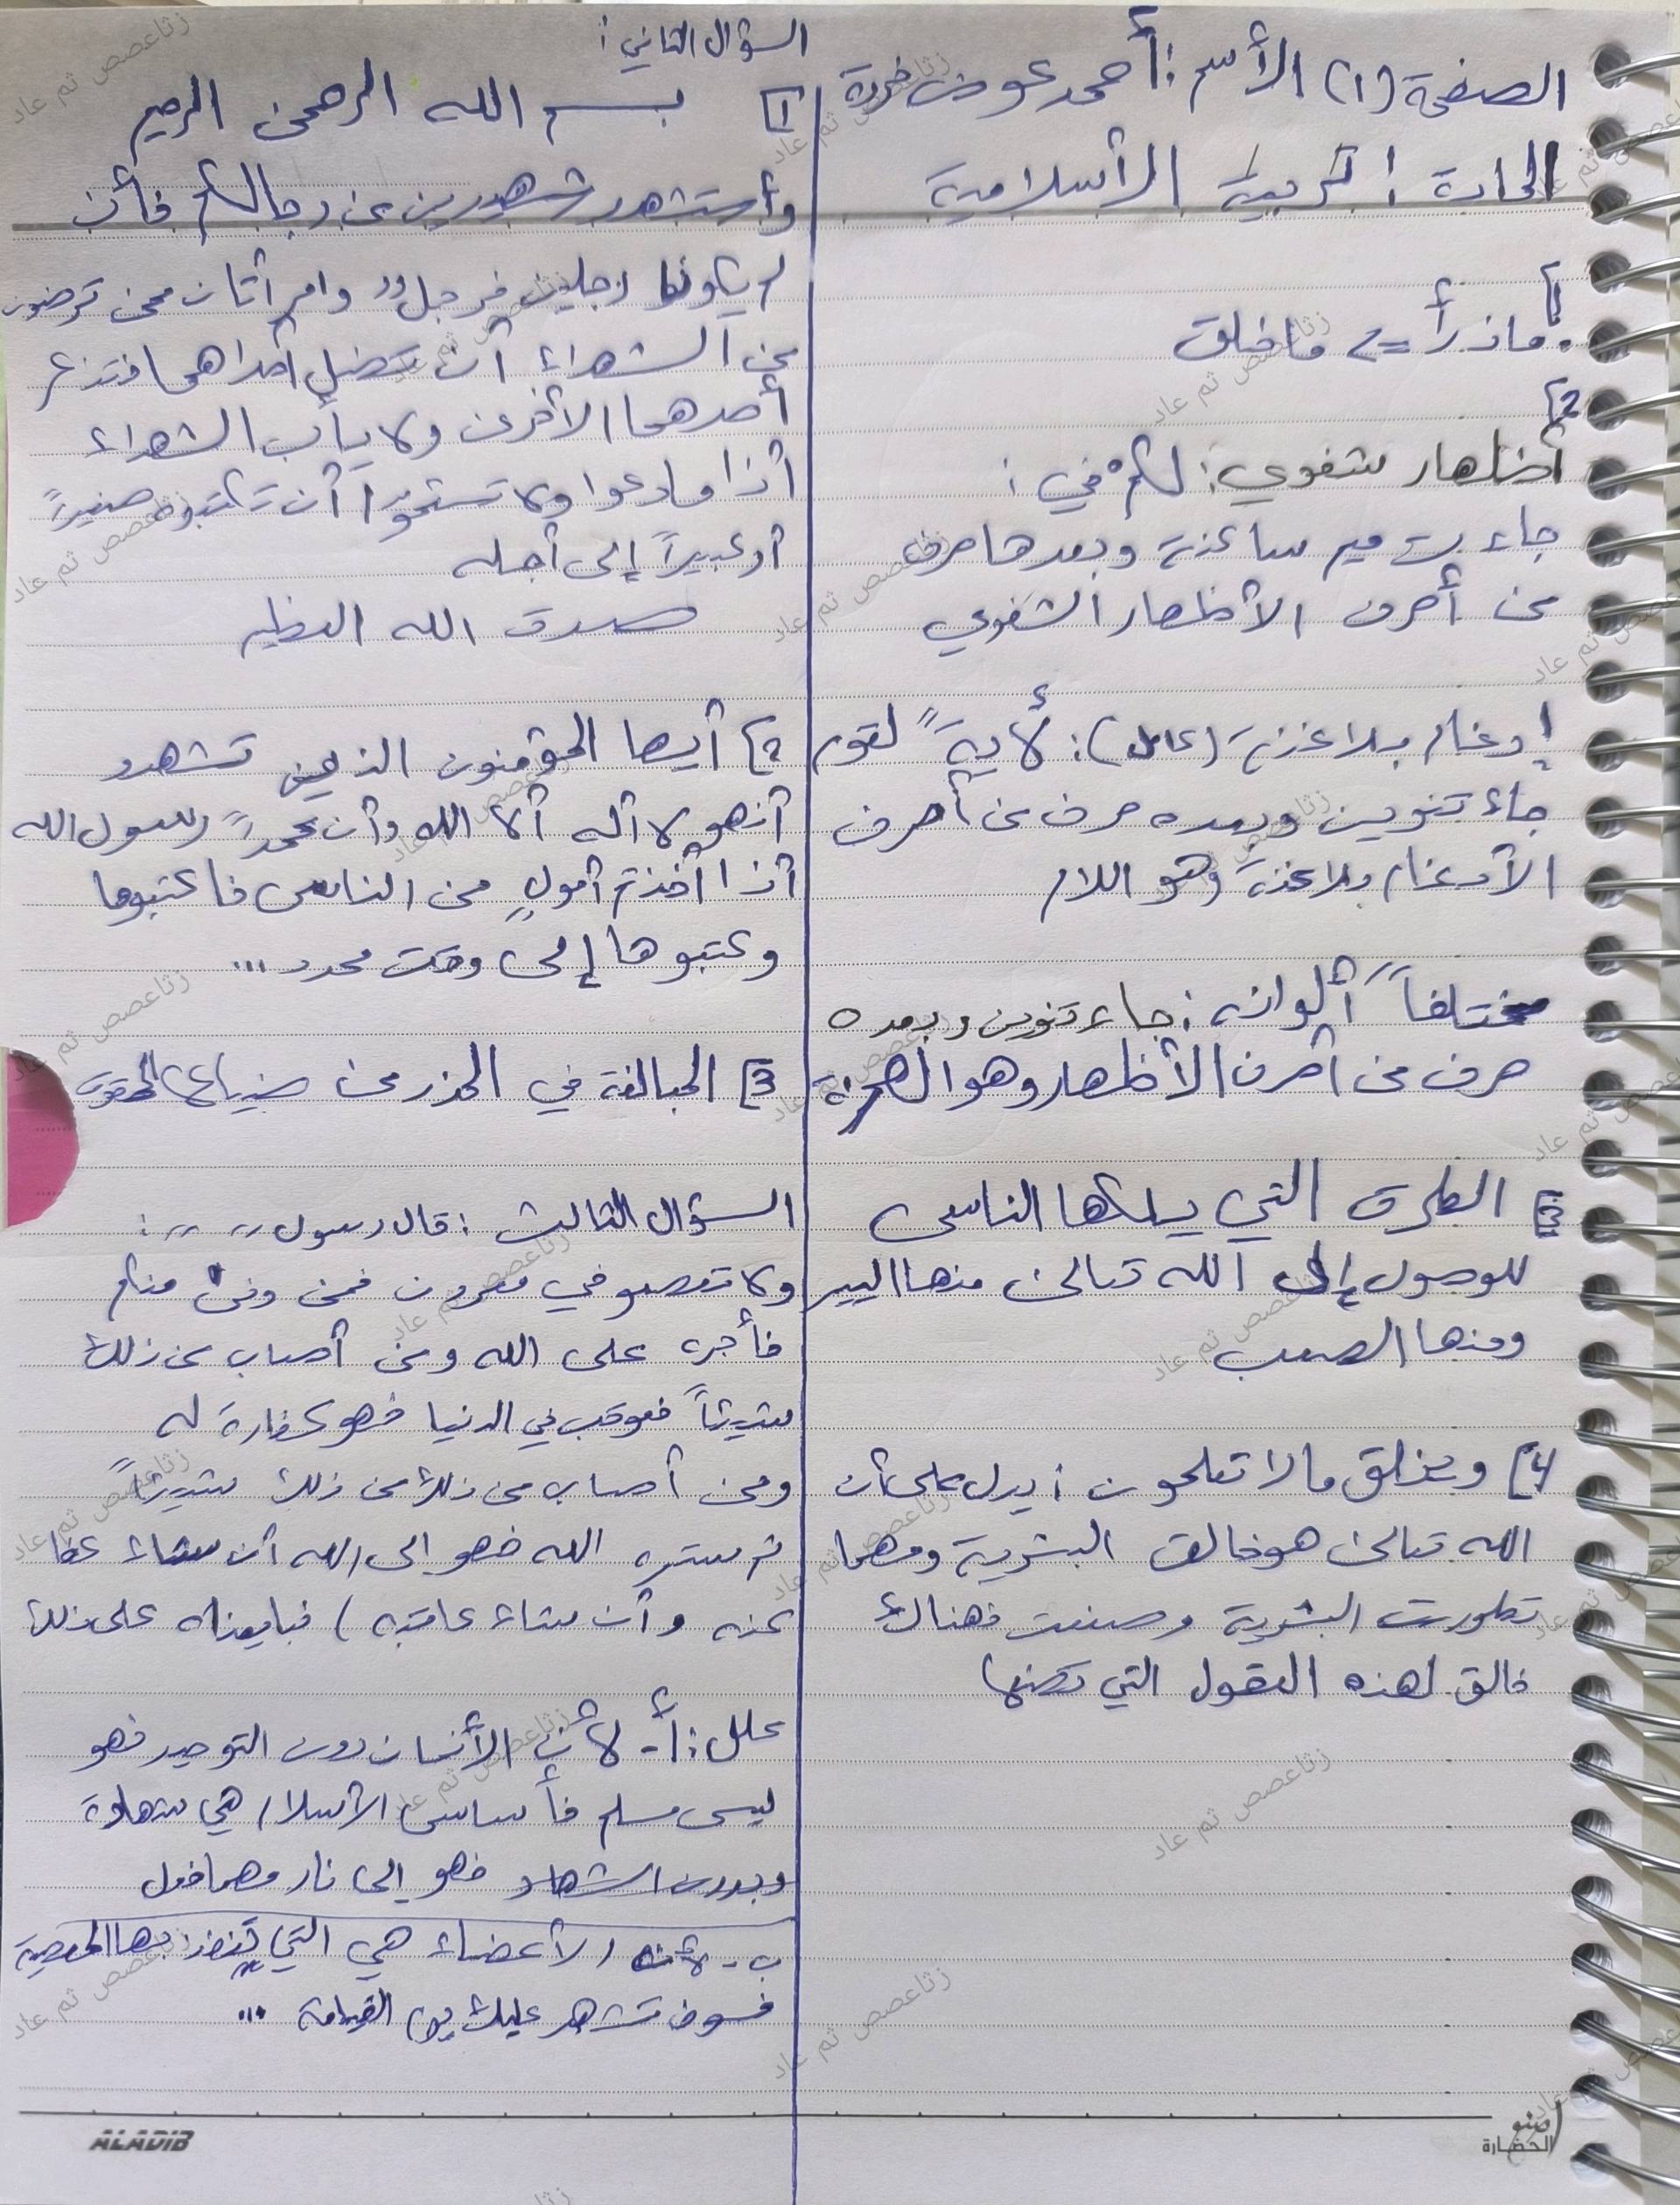 الصفحة (١) الأسم : أحمد عوض
المادة : التربية الأسلامية
1]
. ماذرأ => ما خلق
2]
أظهار شفوي : لكمْ في :
جاءت ميم ساكنة وبعدها حرف
من أحرف الأظهار الشفوي
إدغام بلا غنة (كامل) : لأيةً لقوم
جاء تنوين وبعده حرف من أحرف
الأدغام بلا غنة وهو اللام
مختلفاً ألوانه : جاء تنوين وبعده
حرف من أحرف الأظهار وهو الهمزة
3] الطرق التي يسلكها الناس
للوصول إلى الله تعالى منها اليسر
ومنها الصعب
4] ويخلق مالا تعلمون : يدل على أن
الله تعالى هو خالق البشرية ومهما
تطورت البشرية وصنعت فهناك
خالق لهذه العقول التي تصنعها
السؤال الثاني :
1] بسم الله الرحمن الرحيم
وأستشهدو شهيدين من رجالكم فأن
لم يكونا رجلين فرجل وامرأتان ممن ترضون
من الشهداء أن تضل أحداهما فتذكر
أحدهما الأخرى ولا يأب الشهداء
أذا ما دعوا ولا تستموا أن تكتبوه صغيراً
أو كبيراً إلى أجله
صدق الله العظيم
2] أيها المؤمنون الذين تشهدو
أنهو لا أله ألا الله وأن محمداً رسول الله
أذا أخذتم أمولٍ من الناس فاكتبوها
وكتبوها إلى وقت محدد ...
3] المبالغة في الحذر من ضياع الحقوق
السؤال الثالث : قال رسول ,, ,, :
ولا تعصو في معروف فمن وفى منكم
فأجره على الله ومن أصاب من ذلك
شيئاً فعوقب في الدنيا فهو كفارة له
ومن أصاب من ذلك من ذلك شيئاً
ثم ستره الله فهو الى الله أن شاء عفا
عنه وأن شاء عاقبه ) فبايعناه على ذلك
علل : أ- لأن الأنسان دون التوحيد فهو
ليس مسلم فأساس الأسلام هي شهادة
وبدون الشهاد فهو إلى نار مهما فعل
ب- لأن الأعضاء هي التي تنفذ بها المعصية
فسوف تشهد عليك يوم القيامة ...
ALADIB
اصنع
الحضارة
زثاعصص ثم عاد